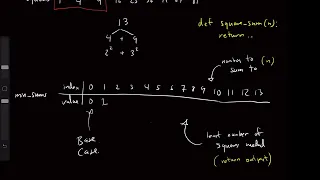 squares 1 4 9 16 25 36 49 64 81
13
4 + 9
2² + 3²
def square_sum(n):
return ..
number to
sum to
index 0 1 2 3 4 5 6 7 8 9 10 11 12 13
min_sums
value 0 1
Base
Case.
least number of
squares needed
(return output)